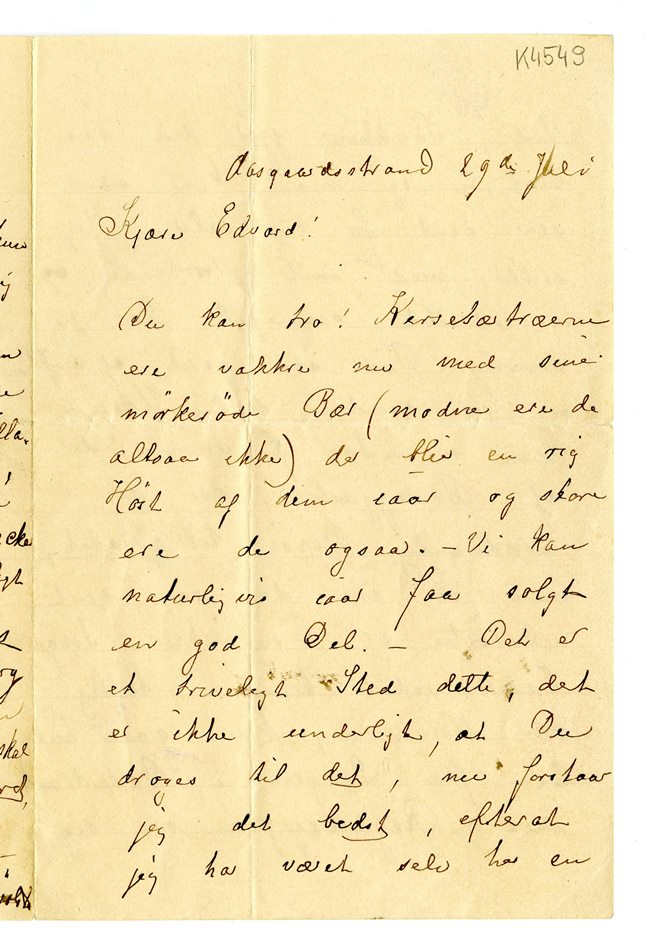 K4549
Aasgaardsstrand 29de Juli
Kjære Edvard!
Du kan tro! Kersebærtræerne
ere vakkre nu med sine
mörkeröde Bær (modne ere de
altsaa ikke) de blir en rig
Höst af dem iaar og store
ere de ogsaa. – Vi kan
naturligvis iaar faa solgt
en god Del. – Det er
et triveligt Sted dette, det
er ikke underligt, at Du
droges til det, nu forstaar
jeg det bedst, efterat
jeg har været selv her en